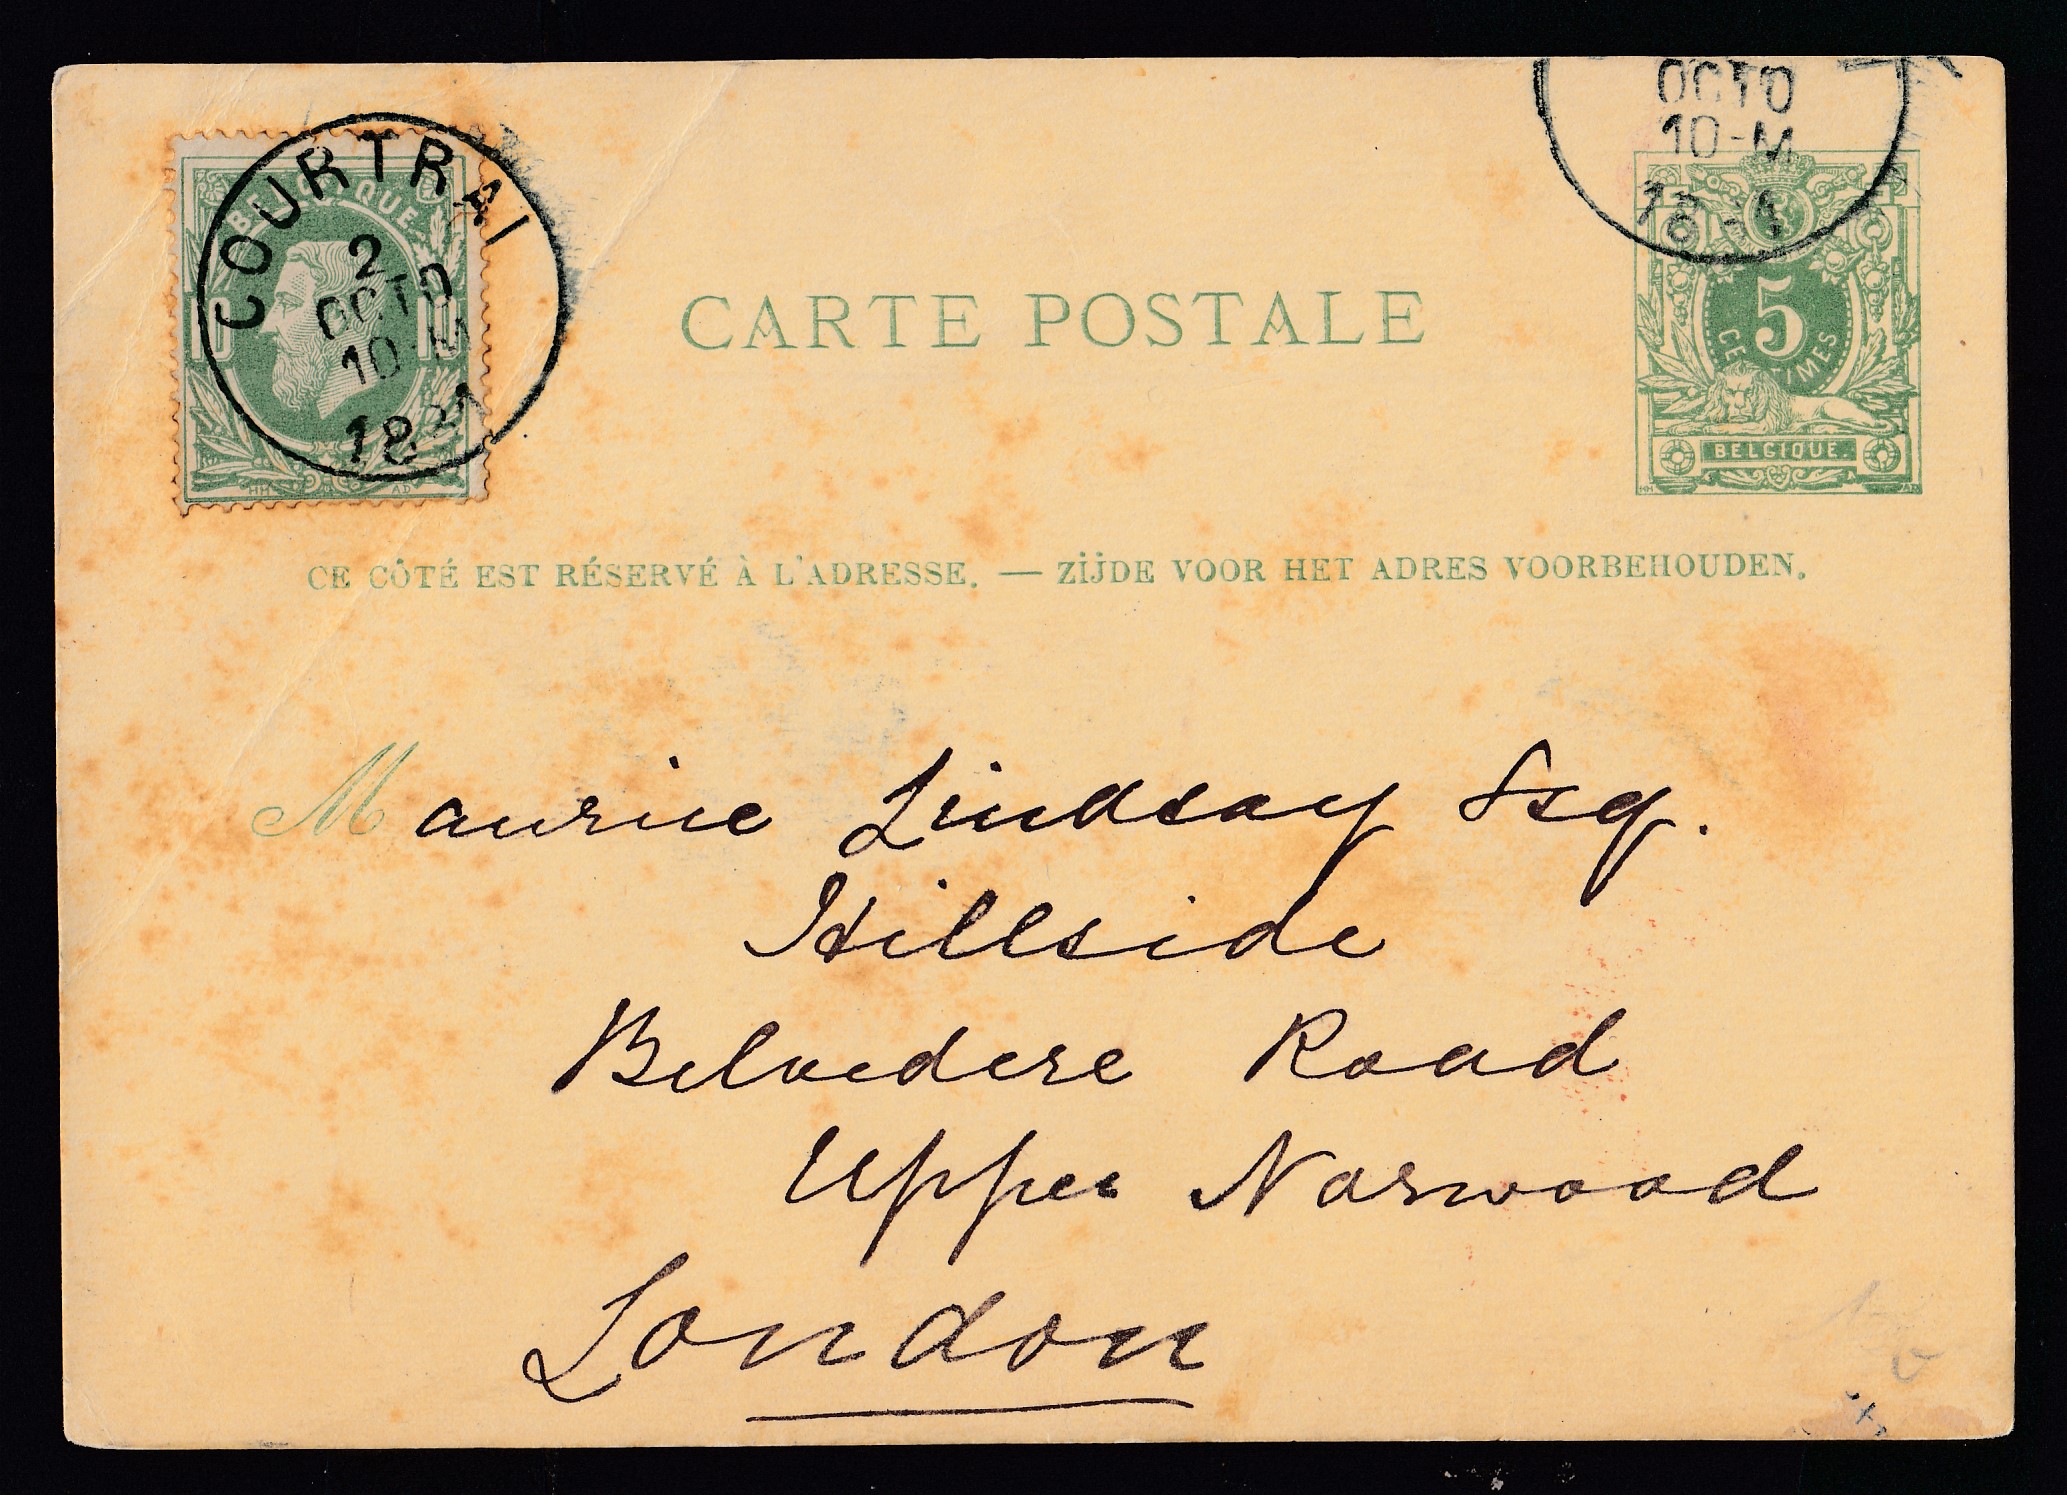 COURTRAI
2
OCTO
10-M
18
BELGIQUE
10 10
HH AD
OCTO
10-M
18
5
5
CENTIMES
BELGIQUE
HH AD
CARTE POSTALE
CE CÔTÉ EST RÉSERVÉ À L'ADRESSE. — ZIJDE VOOR HET ADRES VOORBEHOUDEN.
Maurice Lindsay Esq.
Hillside
Belvedere Road
Upper Norwood
London